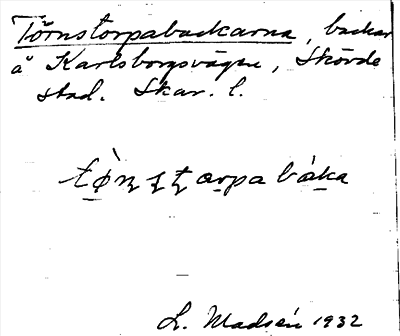 Törnstorpabackarna, backar
å Karlsborgsvägen, Skövde
stad. Skar. l.
L. Madsén 1932